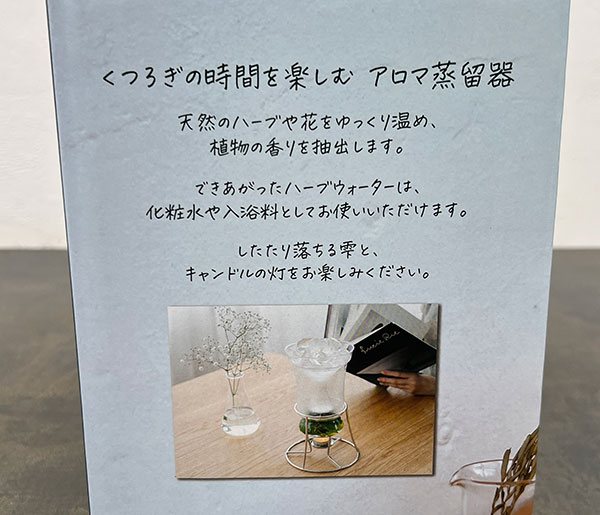 くつろぎの時間を楽しむ アロマ蒸留器
天然のハーブや花をゆっくり温め、
植物の香りを抽出します。
できあがったハーブウォーターは、
化粧水や入浴料としてお使いいただけます。
したたり落ちる雫と、
キャンドルの灯をお楽しみください。
Lucie Rie